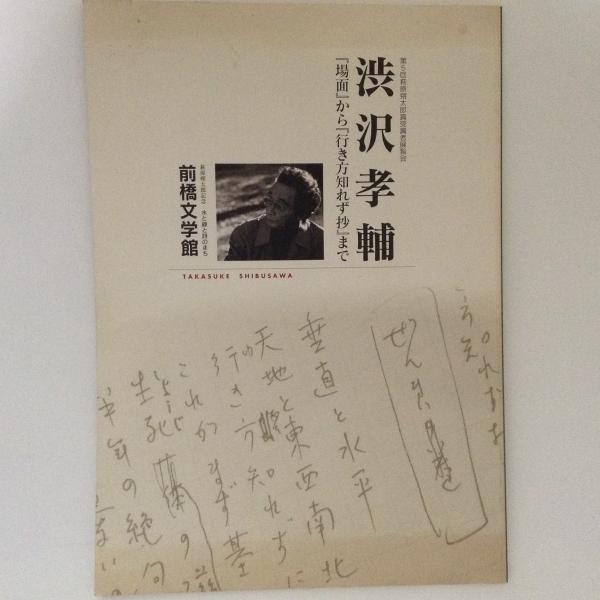 第5回萩原朔太郎賞受賞者展覧会
渋沢孝輔
『場面』から『行き方知れず抄』まで
萩原朔太郎記念 水と緑と詩のまち
前橋文学館
TAKASUKE SHIBUSAWA
方知れずな
ぜんまい
垂直と水平
天地と東西南北
行き方知れずに
これがまず基
生死
半年の絶句